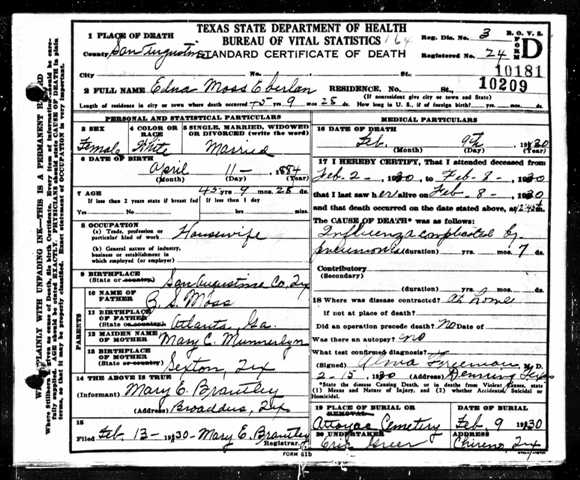 TEXAS STATE DEPARTMENT OF HEALTH
BUREAU OF VITAL STATISTICS 164
STANDARD CERTIFICATE OF DEATH
Reg. Dis. No. 3 B. O. V. S.
Registered No. 24 FORM D
10181
10209
1 PLACE OF DEATH
County San Augustine
City No. St.
2 FULL NAME Edna Moss Eberlan RESIDENCE, No. St.,
(If nonresident give city or town and State)
Length of residence in city or town where death occurred 45 yrs. 9 mos. 28 ds. How long in U. S., if of foreign birth? yrs. mos. ds.
PERSONAL AND STATISTICAL PARTICULARS
3 SEX 4 COLOR OR RACE 5 SINGLE, MARRIED, WIDOWED OR DIVORCED (write the word)
Female White Married
6 DATE OF BIRTH
April 11- 1884
(Month) (Day) (Year)
7 AGE 45 yrs. 9 mos. 28 ds.
If less than 2 years state if breast fed If less than 1 day
8 OCCUPATION
(a) Trade, profession or particular kind of work Housewife
(b) General nature of industry, business or establishment in which employed (or employer)
9 BIRTHPLACE
(State or country) San Augustine Co, Tex
PARENTS
10 NAME OF FATHER B. S. Moss
11 BIRTHPLACE OF FATHER
(State or country) Atlanta, Ga.
12 MAIDEN NAME OF MOTHER Mary E. Munnerlyn
13 BIRTHPLACE OF MOTHER
(State or country) Sexton, Tex
14 THE ABOVE IS TRUE
Mary E. Brantley
(Address) Broaddus, Tex
15
Filed Feb. 13- 1930 - Mary E. Brantley
Registrar
MEDICAL PARTICULARS
16 DATE OF DEATH
Feb. 9th 1930
(Month) (Day) (Year)
17 I HEREBY CERTIFY, That I attended deceased from
Feb. 2- 1930 to Feb- 8- 1930
that I last saw her alive on Feb- 8- 1930
and that death occurred on the date stated above, at 12:45 m.
The CAUSE OF DEATH* was as follows:
Influenza complicated by
pneumonia (duration) yrs. mos. 7 ds.
Contributory
(Secondary)
(duration) yrs. mos. ds.
18 Where was disease contracted? At home
if not at place of death?
Did an operation precede death? No Date of
Was there an autopsy? no
What test confirmed diagnosis?
(Signed) Freeman M. D.
2-13, 1930 (Address) Denning Tex
*State the disease Causing Death, or in deaths from Violent Causes, state (1) Means and Nature of Injury, and (2) whether Accidental, Suicidal or Homicidal.
19 PLACE OF BURIAL OR REMOVAL DATE OF BURIAL
Attoyac Cemetery Feb. 9 1930
20 UNDERTAKER ADDRESS
Greer Chireno, Tex
FORM